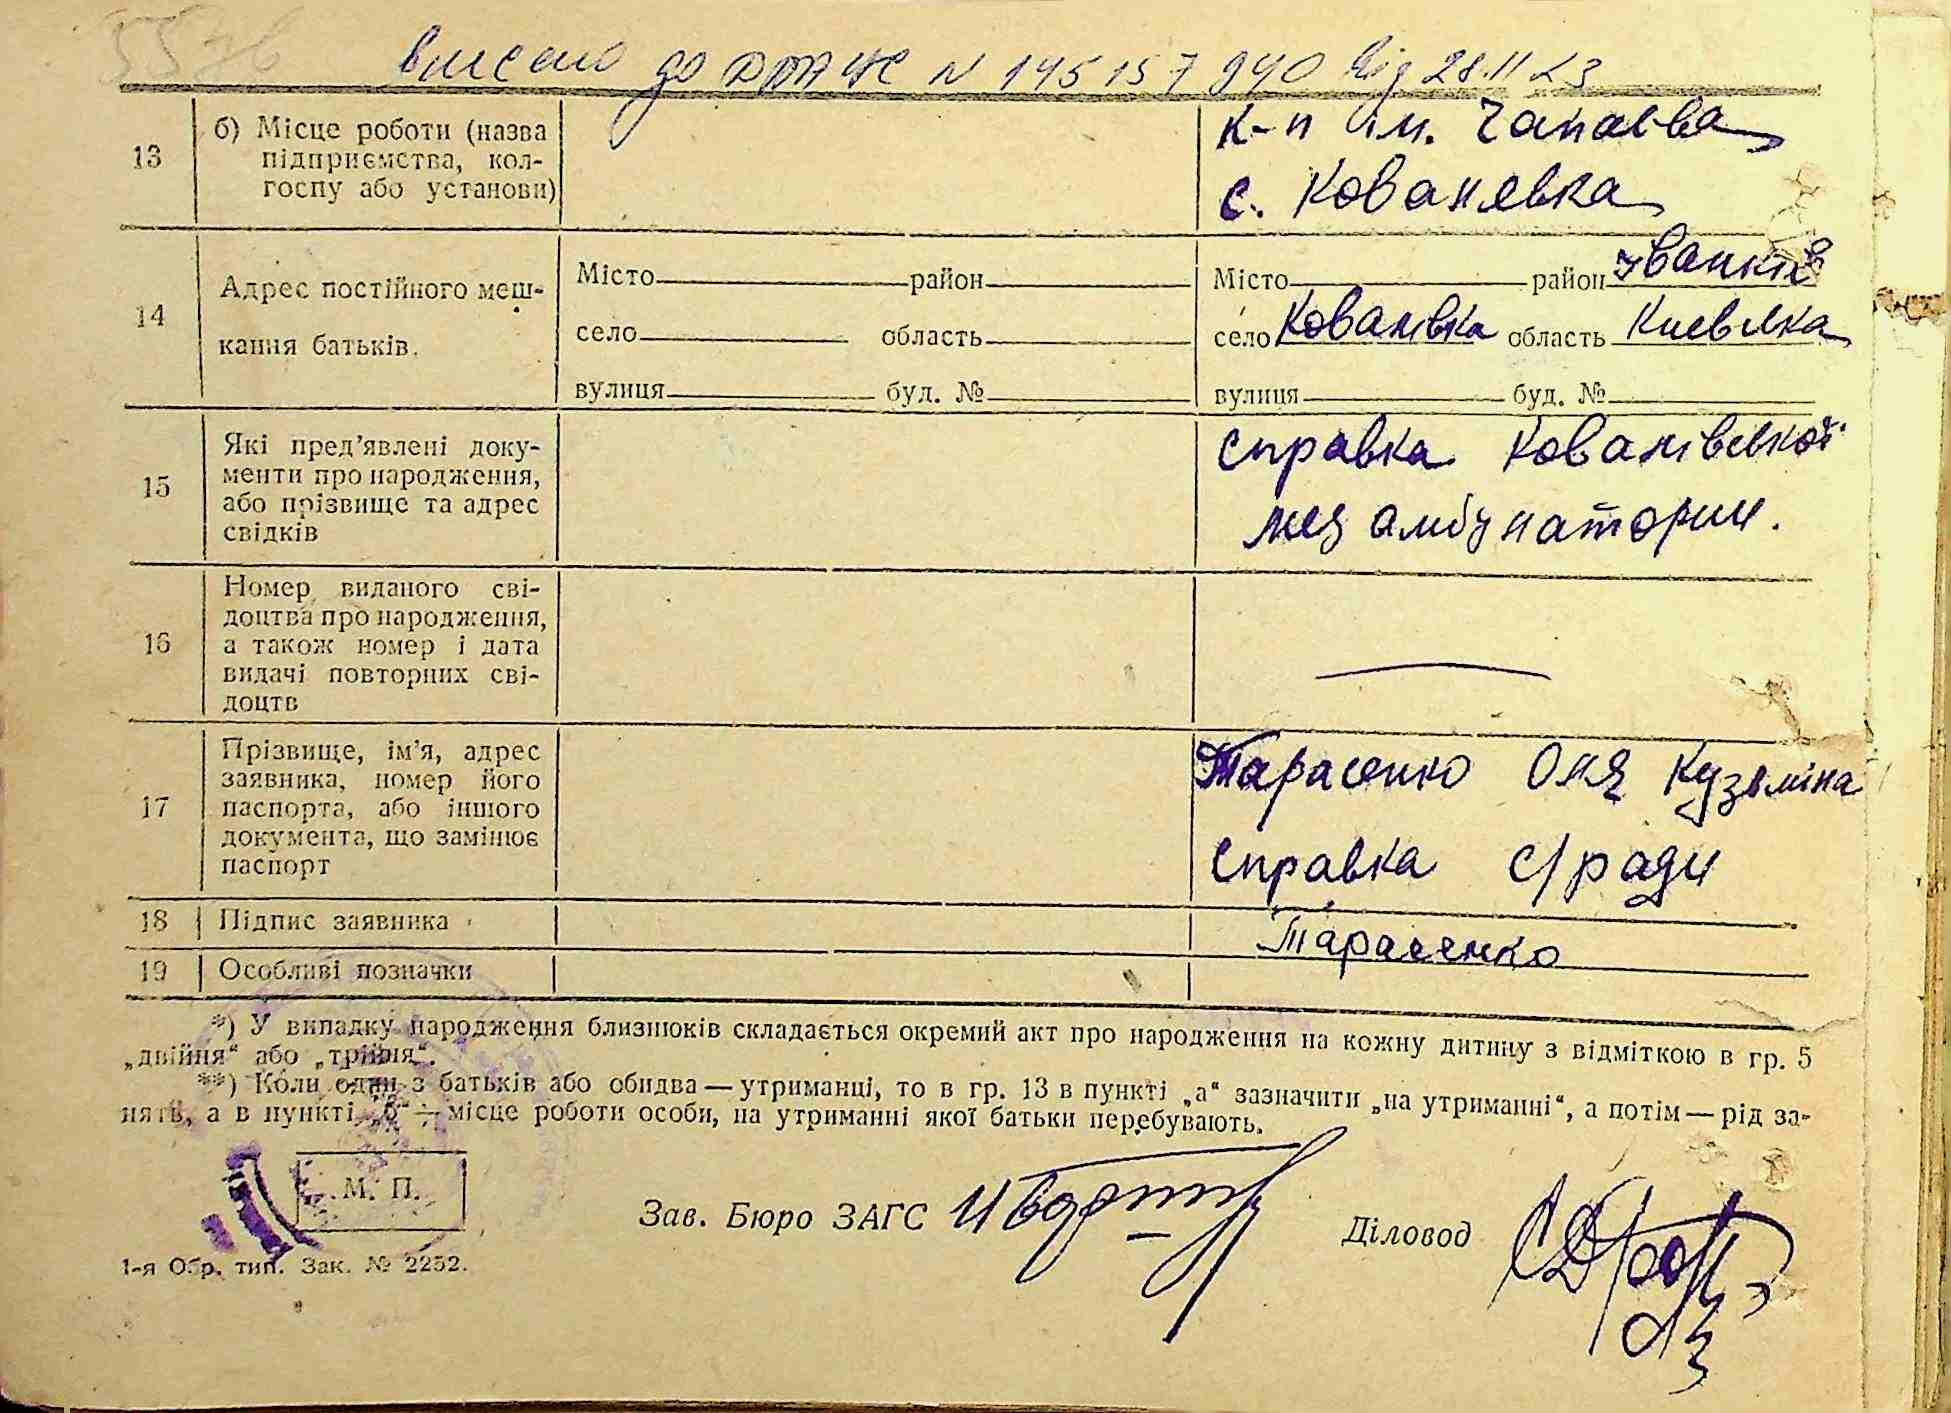 внесено до ДРАЦС N 145157940 від 28.11.23
13 б) Місце роботи (назва підприємства, кол-
госпу або установи)
к-п ім. Чапаєва
с. Ковалівка
14 Адрес постійного меш-
кання батьків.
Місто район Місто район Іванків
село область село Ковалівка область Києвска
вулиця буд. № вулиця буд. №
15 Які пред’явлені доку-
менти про народження,
або прізвище та адрес
свідків
справка Ковалівської
мед амбулатории.
16 Номер виданого сві-
доцтва про народження,
а також номер і дата
видачі повторних сві-
доцтв
17 Прізвище, ім’я, адрес
заявника, номер його
паспорта, або іншого
документа, що замінює
паспорт
Тарасенко Оля Кузьмінa
справка с/ради
18 Підпис заявника Тарасенко
19 Особливі позначки
*) У випадку народження близнюків складається окремий акт про народження на кожну дитину з відміткою в гр. 5
„двійня“ або „трійня“.
**) Коли один з батьків або обидва — утриманці, то в гр. 13 в пункті „а“ зазначити „на утриманні“, а потім — рід за-
нять, а в пункті „б“ — місце роботи особи, на утриманні якої батьки перебувають.
М. П.
Зав. Бюро ЗАГС Діловод
1-я Обр. тип. Зак. № 2252.